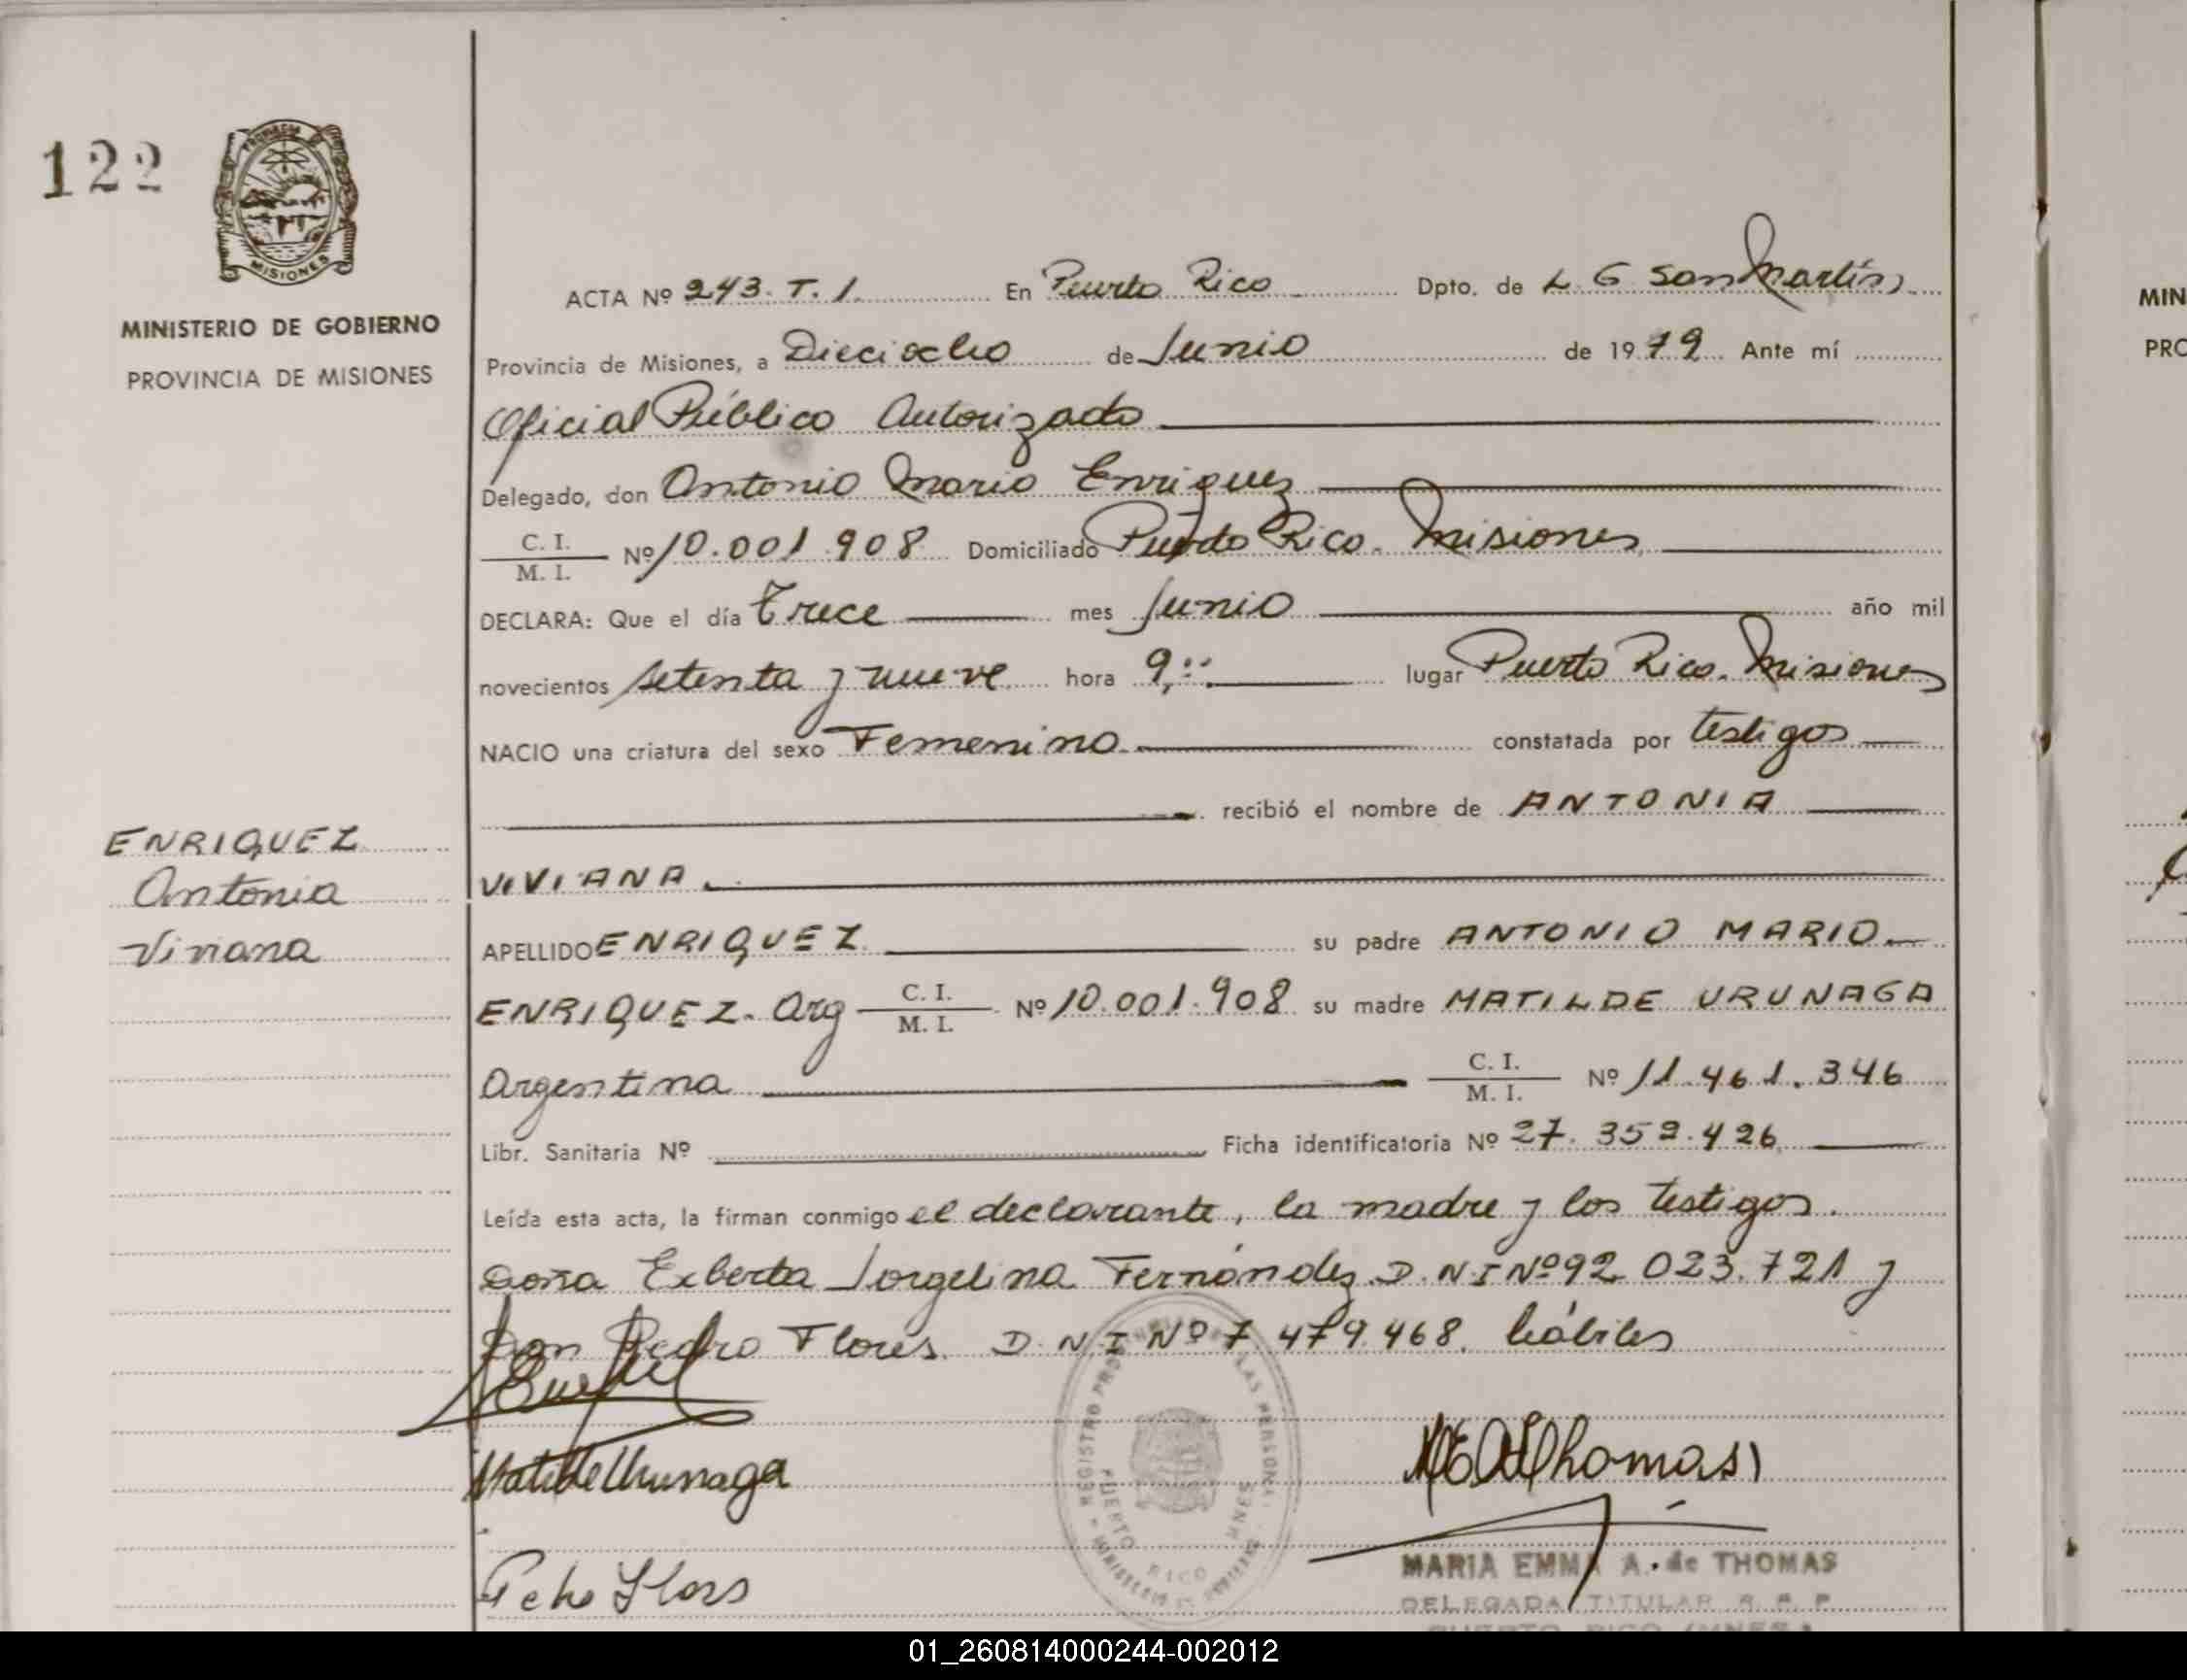 122
PROVINCIA
MISIONES
MINISTERIO DE GOBIERNO
PROVINCIA DE MISIONES
ENRIQUEZ
Antonia
Viviana
ACTA Nº 243. T. 1. En Puerto Rico Dpto. de L G San Martín
Provincia de Misiones, a Dieciocho de Junio de 1979 Ante mí
Oficial Público Autorizado
Delegado, don Antonio Mario Enriquez
C. I.
M. I. Nº 10.001.908 Domiciliado Puerto Rico. Misiones
DECLARA: Que el día Trece mes Junio año mil
novecientos setenta y nueve hora 9,:: lugar Puerto Rico. Misiones
NACIO una criatura del sexo Femenino constatada por testigos
recibió el nombre de ANTONIA
VIVIANA.
APELLIDO ENRIQUEZ su padre ANTONIO MARIO
ENRIQUEZ. Arg C. I.
M. I. Nº 10.001.908 su madre MATILDE URUNAGA
Argentina C. I.
M. I. Nº 11.461.346
Libr. Sanitaria Nº Ficha identificatoria Nº 27.352.426
Leída esta acta, la firman conmigo el declarante, la madre y los testigos.
Doña Exberta Jorgelina Fernández D.N.I Nº 92 023.721 y
Don Pedro Flores. D.N.I Nº 7.479.468. hábiles
Matilde Urunaga
Thomas
MARIA EMMA A. de THOMAS
DELEGADA TITULAR R. P. P.
PUERTO RICO (MNES.)
REGISTRO LAS PERSONAS
PUERTO RICO MNES
Flores
MIN
PRO
01_260814000244-002012